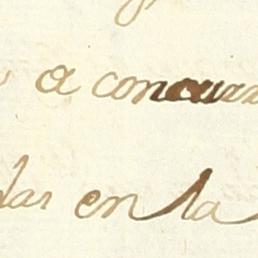 a concurr
las en la